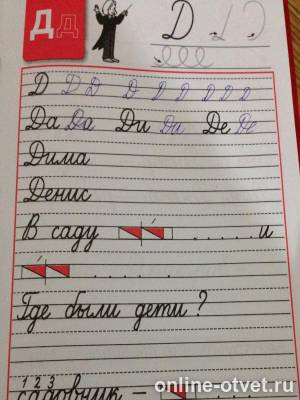 Д д
Д
Д Д Д Д Д Д Д Д Д
Да Да Ди Ди Де Де
Дима
Денис
В саду . . . . . и
. . . . . .
Где были дети?
1 2 3
садовник –
online-otvet.ru